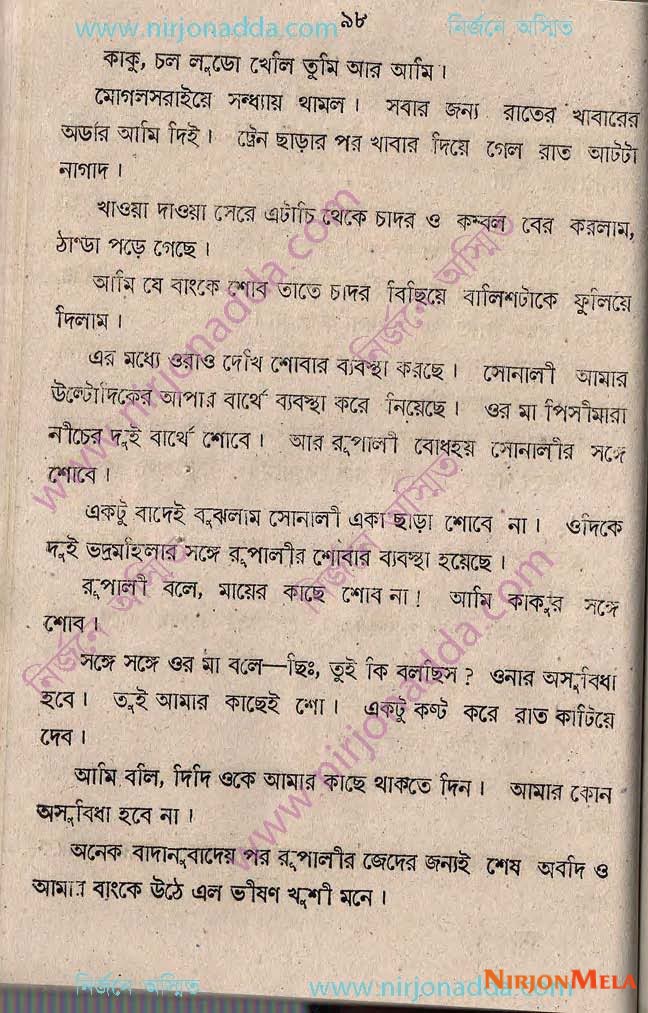 www.nirjonadda.com ৯৮ নির্জনে অস্মিত
কাকু, চল লুডো খেলি তুমি আর আমি।
মোগলসরাইয়ে সন্ধ্যায় থামল। সবার জন্য রাতের খাবারের
অর্ডার আমি দিই। ট্রেন ছাড়ার পর খাবার দিয়ে গেল রাত আটটা
নাগাদ।
খাওয়া দাওয়া সেরে এটাচি থেকে চাদর ও কম্বল বের করলাম,
ঠাণ্ডা পড়ে গেছে।
আমি যে বাংকে শোব তাতে চাদর বিছিয়ে বালিশটাকে ফুলিয়ে
দিলাম।
এর মধ্যে ওরাও দেখি শোবার ব্যবস্থা করছে। সোনালী আমার
উল্টোদিকের আপার বার্থে ব্যবস্থা করে নিয়েছে। ওর মা পিসীমারা
নীচের দুই বার্থে শোবে। আর রূপালী বোধহয় সোনালীর সঙ্গে
শোবে।
একটু বাদেই বুঝলাম সোনালী একা ছাড়া শোবে না। ওদিকে
দুই ভদ্রমহিলার সঙ্গে রূপালীর শোবার ব্যবস্থা হয়েছে।
রূপালী বলে, মায়ের কাছে শোব না! আমি কাকুর সঙ্গে
শোব।
সঙ্গে সঙ্গে ওর মা বলে—ছিঃ, তুই কি বলছিস? ওনার অসুবিধা
হবে। তুই আমার কাছেই শো। একটু কষ্ট করে রাত কাটিয়ে
দেব।
আমি বলি, দিদি ওকে আমার কাছে থাকতে দিন। আমার কোন
অসুবিধা হবে না।
অনেক বাদানুবাদেয় পর রূপালীর জেদের জন্যই শেষ অবদি ও
আমার বাংকে উঠে এল ভীষণ খুশী মনে।
www.nirjonadda.com
নির্জনে অস্মিত
নির্জনে অস্মিত
নির্জনে অস্মিত
www.nirjonadda.com
নির্জনে অস্মিত www.nirjonadda.com
NIRJONMELA